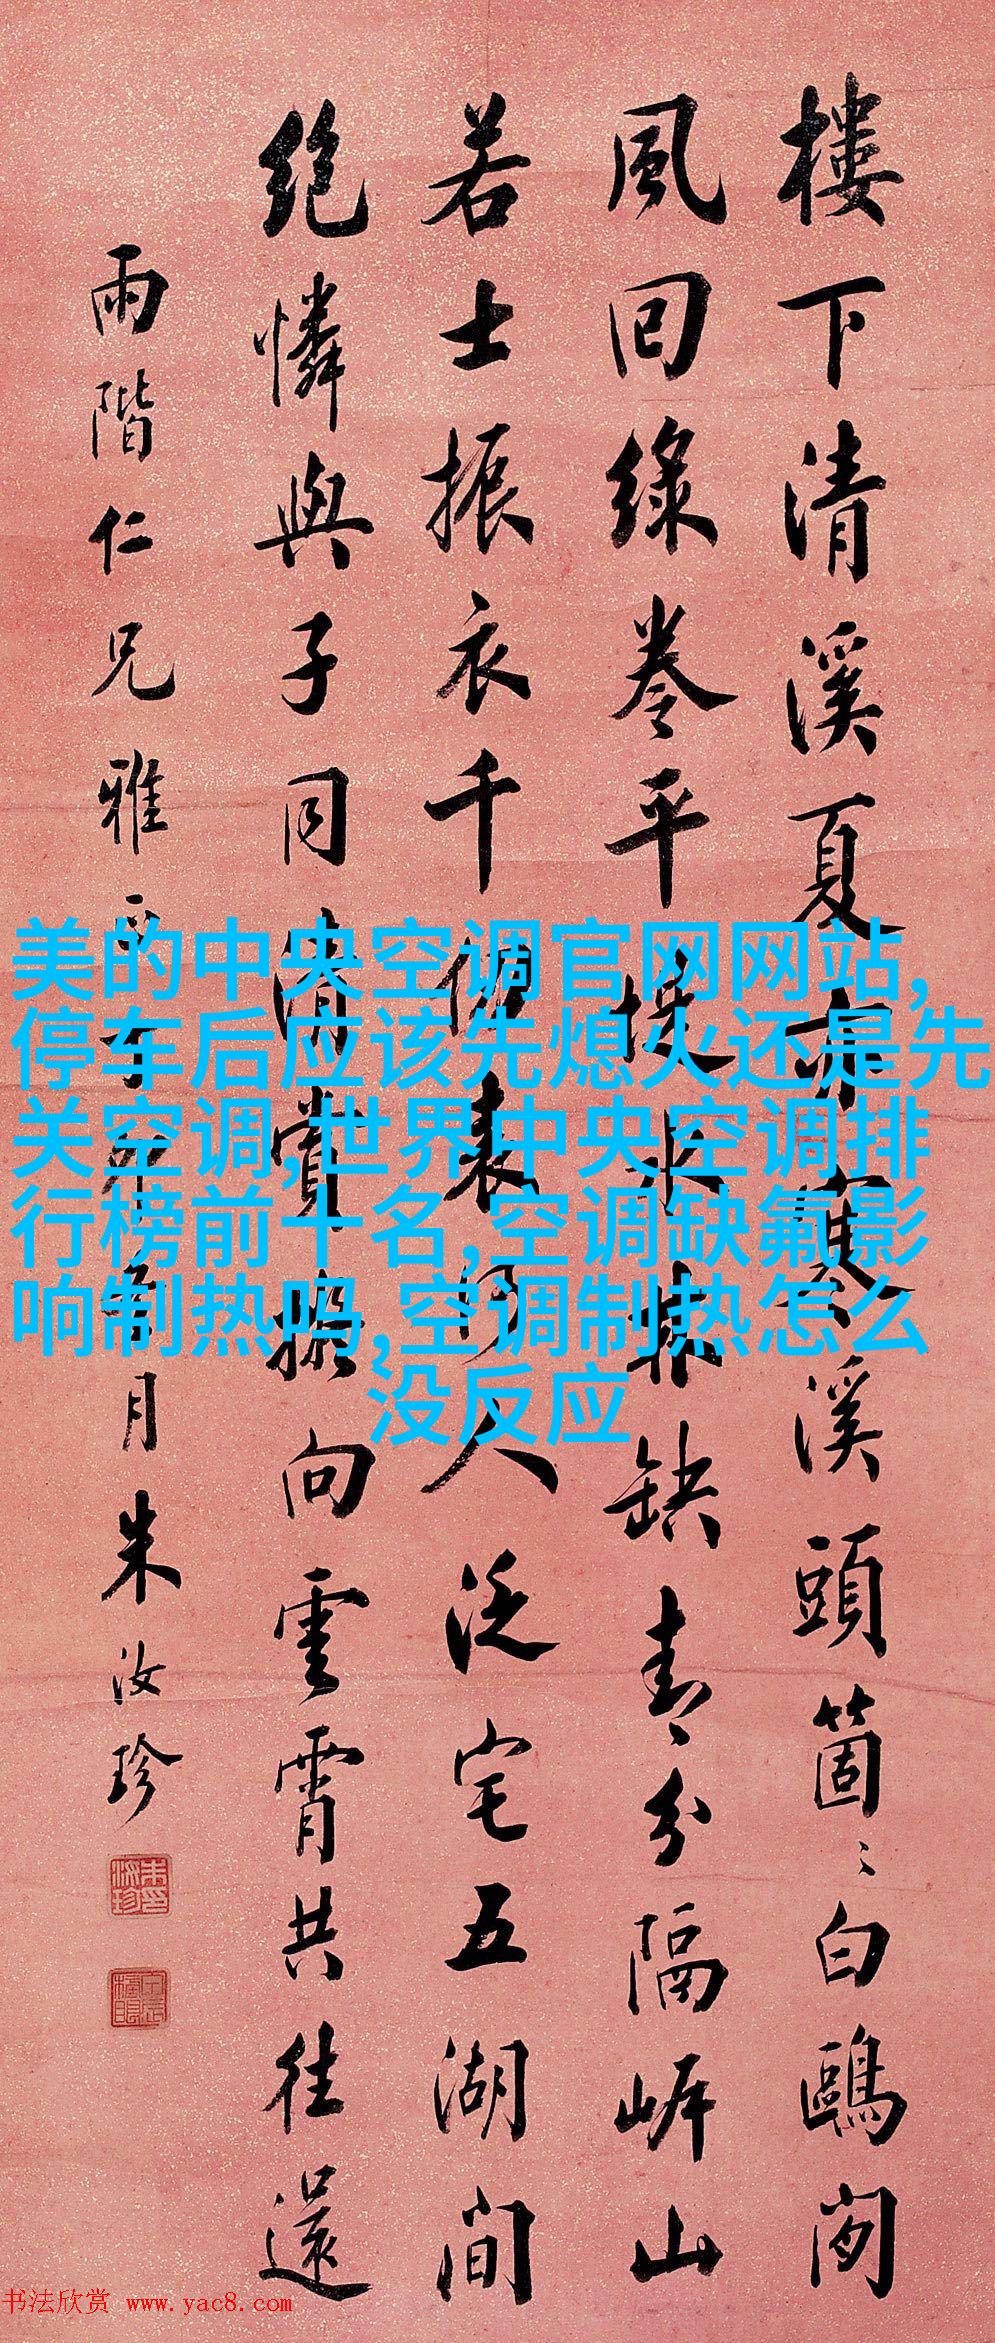 樓下清溪夏亦寒溪頭箇〻白鷗閒
風回綠卷平堤水林缺青分隔岸山
若士振衣千仞表何人泛宅五湖間
絕憐與子同清賞向雲霄共往還
雨階仁兄雅月朱汝珍
朱汝珍印
甲辰榜眼
美的中央空调官网网站,
停车后应该先熄火还是先
关空调,世界中央空调排
行榜前十名,空调缺氟影
响制热吗,空调制热怎么
没反应
书法欣赏 www.yac8.com